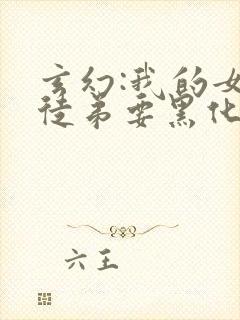 玄幻:我的女
徒弟要黑化
六王